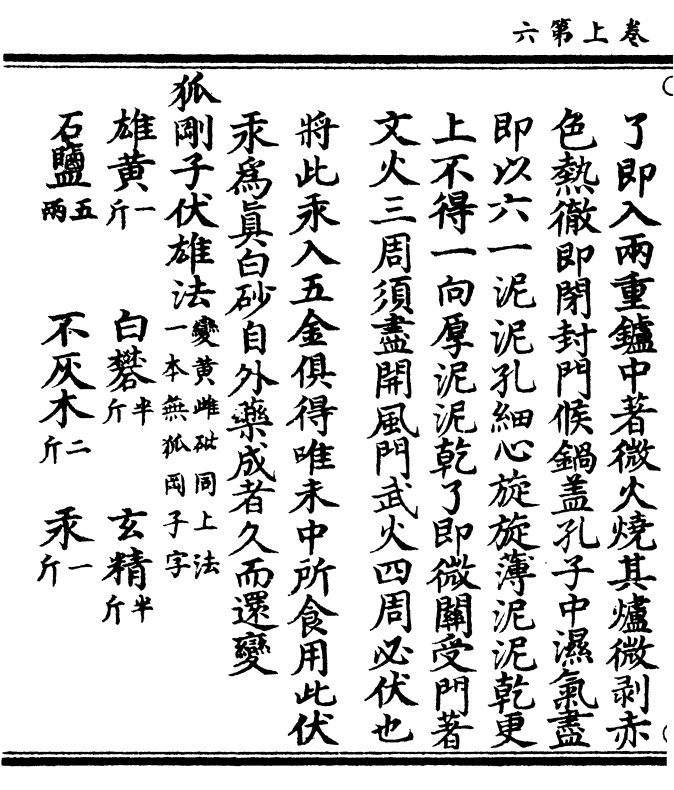 卷上第六
了即入兩重鑪中著微火燒其爐微剥赤
色熱徹即閉封門候鍋盖孔子中濕氣盡
即以六一泥泥孔細心旋旋薄泥泥乾更
上不得一向厚泥泥乾了即微關受門著
文火三周須盡開風門武火四周必伏也
將此汞入五金俱得唯未中所食用此伏
汞爲眞白砂自外藥成者久而還變
狐剛子伏雄法變黃雌砒同上法
一本無狐岡子字
雄黃一斤 白礬半斤 玄精半斤
石鹽五兩 不灰木二斤 汞一斤